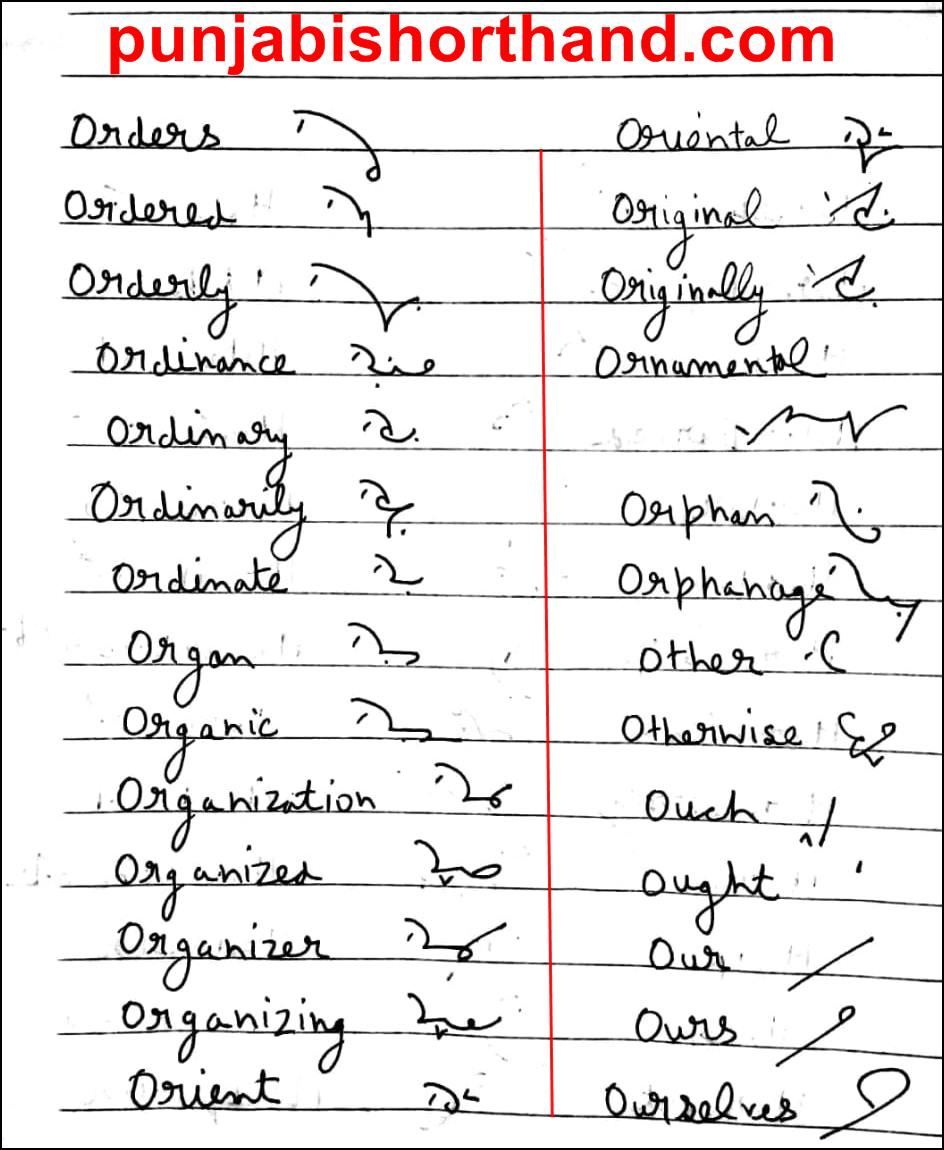 punjabishorthand.com
Orders
Ordered
Orderly
Ordinance
Ordinary
Ordinarily
Ordinate
Organ
Organic
Organization
Organized
Organizer
Organizing
Orient
Oriental
Original
Originally
Ornamental
Orphan
Orphanage
Other
Otherwise
Ouch
Ought
Our
Ours
Ourselves